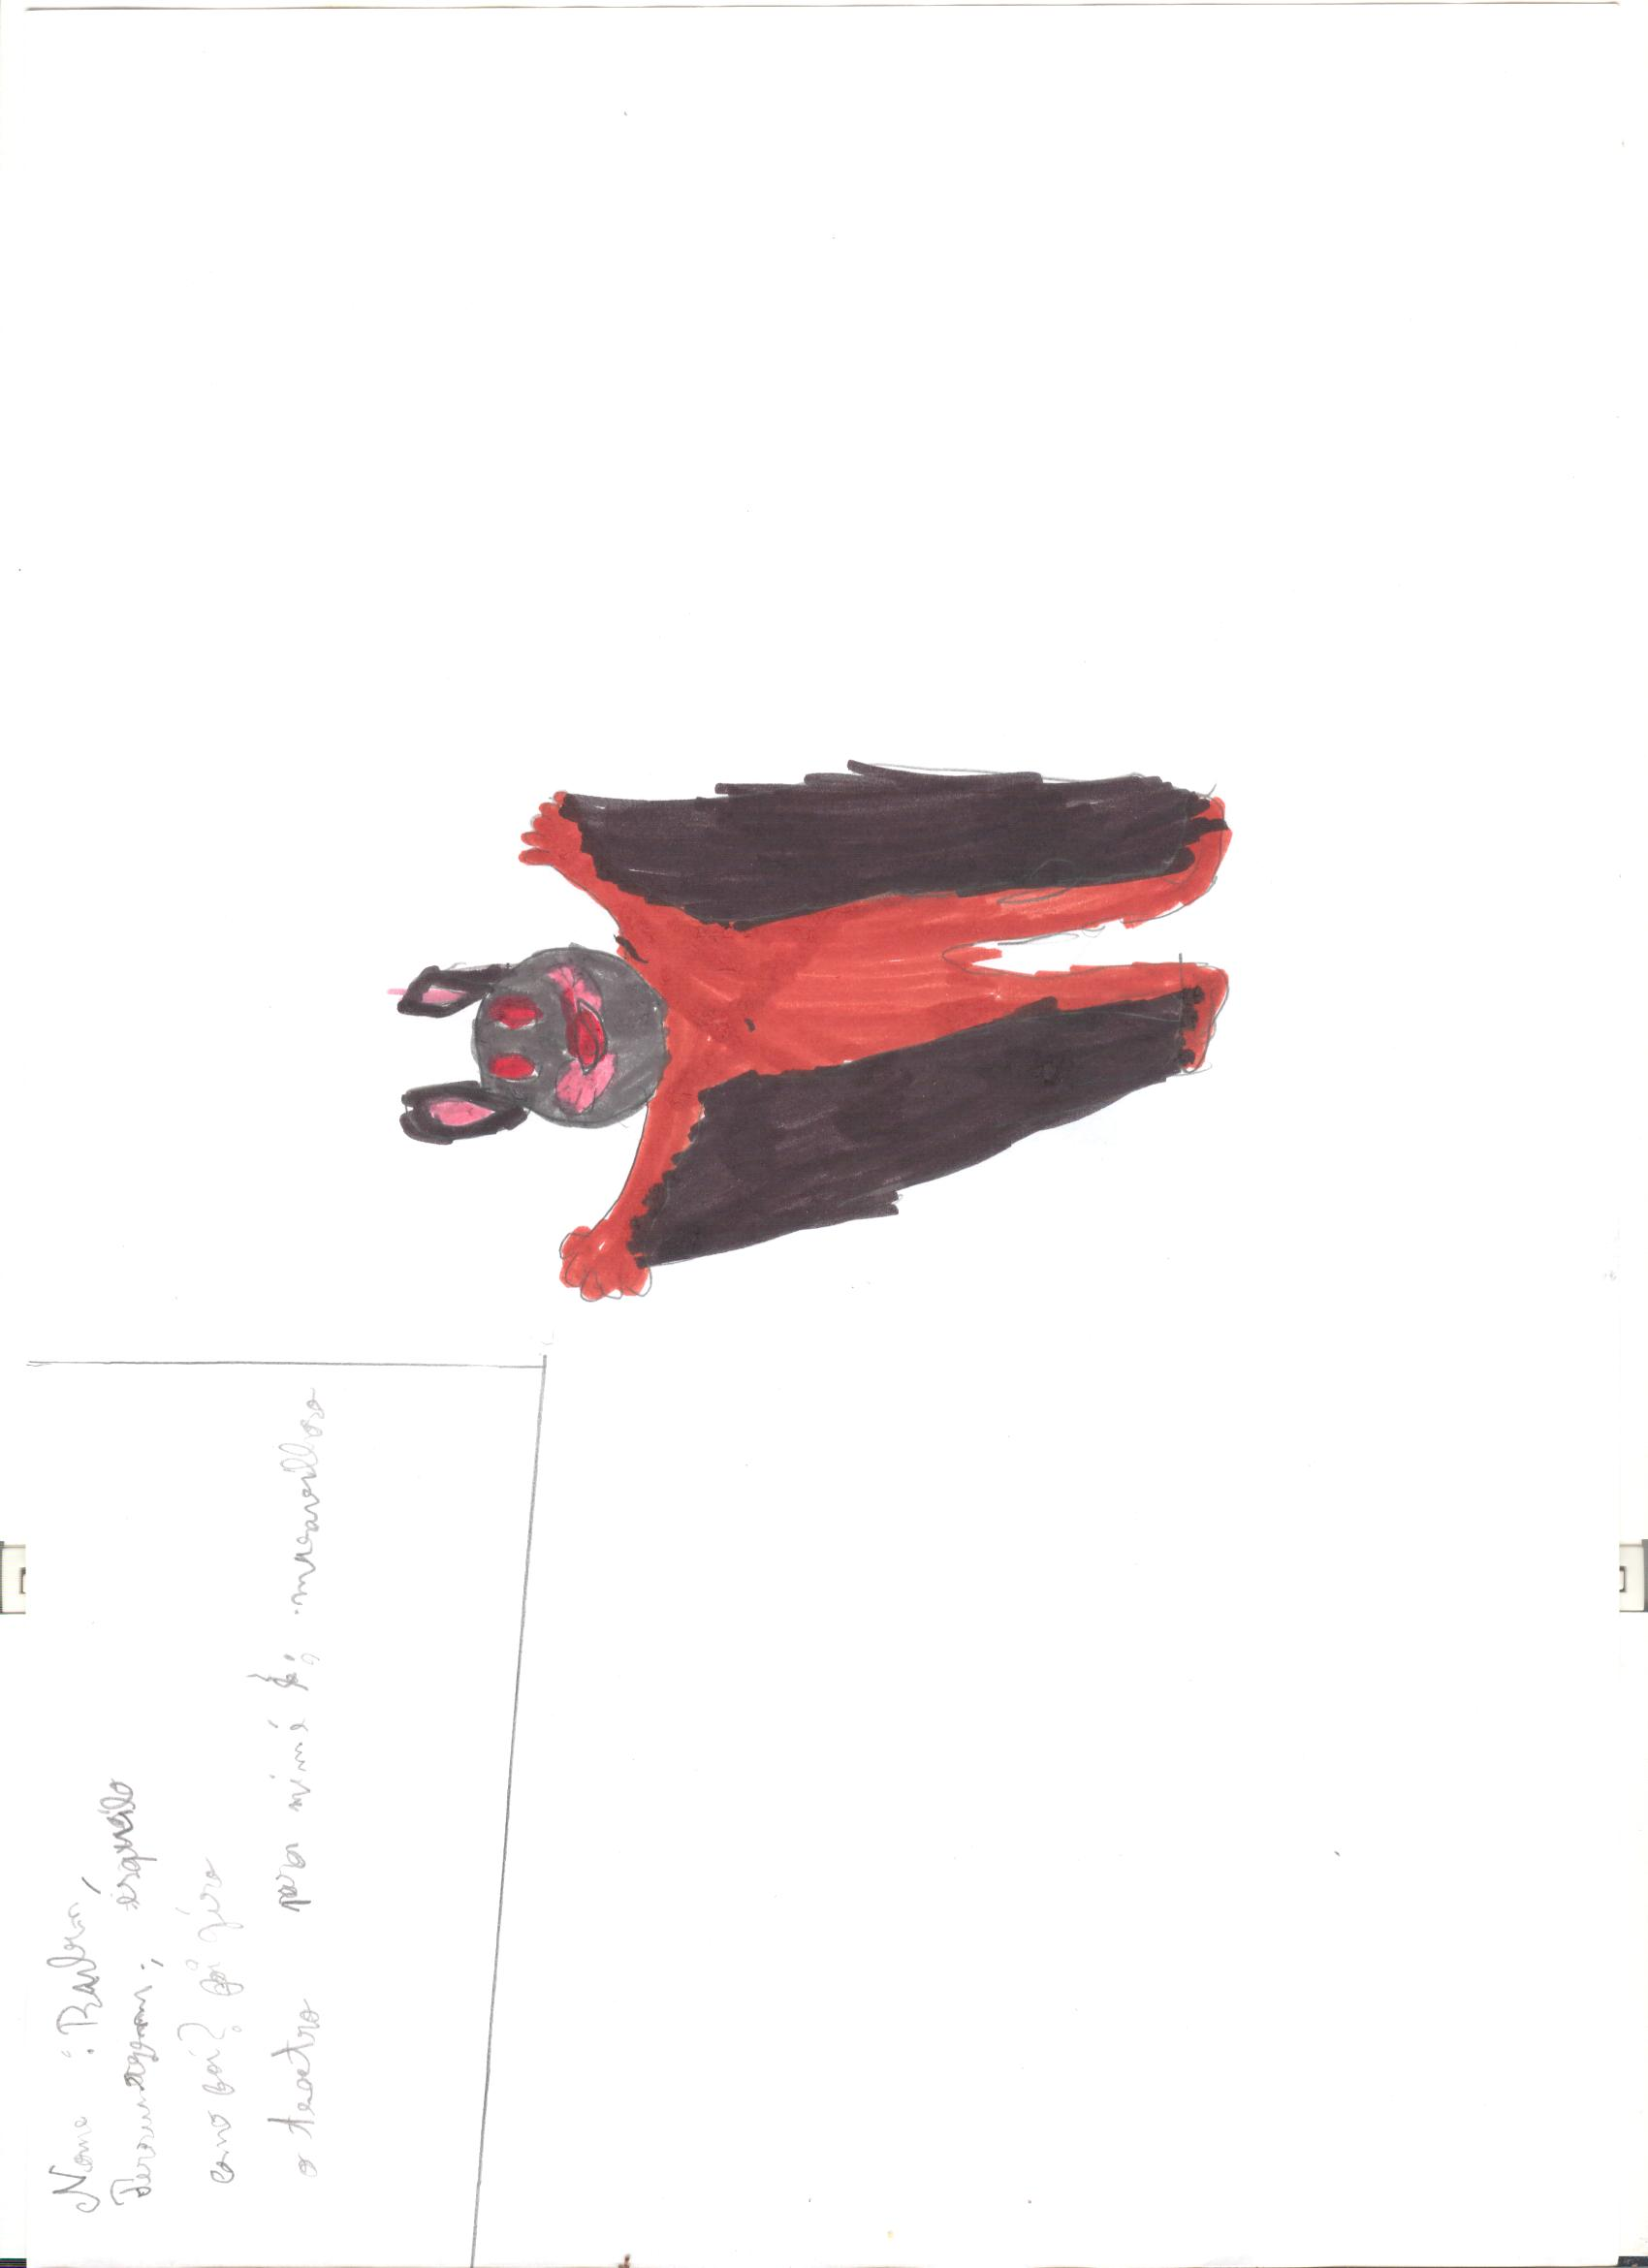 Nome :
Personagem: esquilo
como foi? foi giro
o teatro para mim é maravilhoso